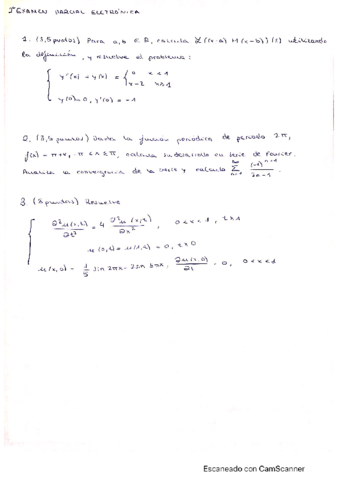 1º EXAMEN PARCIAL ELECTRÓNICA
1. (3,5 puntos) Para a,b ∈ ℝ, calcula ℒ((x-a) H(x-b))(s) utilizando
la definición, y resuelve el problema:
y''(x) + y(x) = { 0 x < 1
x-2 x ≥ 1
y(0)=0, y'(0) = -1
2. (3,5 puntos) Dada la función periódica de periodo 2π,
f(x) = π+x, -π < x ≤ π, calcula su desarrollo en serie de Fourier.
Analiza la convergencia de la serie y calcula ∑ (-1)^{n+1} / 2n-1
3. (3 puntos) Resuelve
∂²u(x,t)/∂t² = 4 ∂²u(x,t)/∂x², 0<x<1,
u(0,t) = u(1,t) = 0, t>0
u(x,0) = 1/5 sin 2πx - 2 sin 5πx, ∂u(x,0)/∂t = 0, 0<x<1
Escaneado con CamScanner